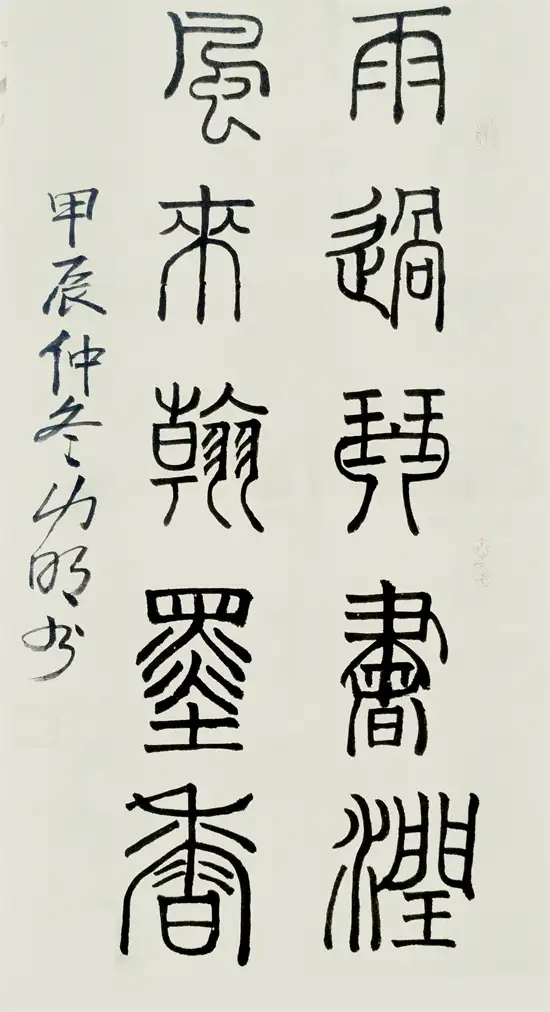 雨過琴書潤
風來翰墨香
甲辰仲冬幼明书